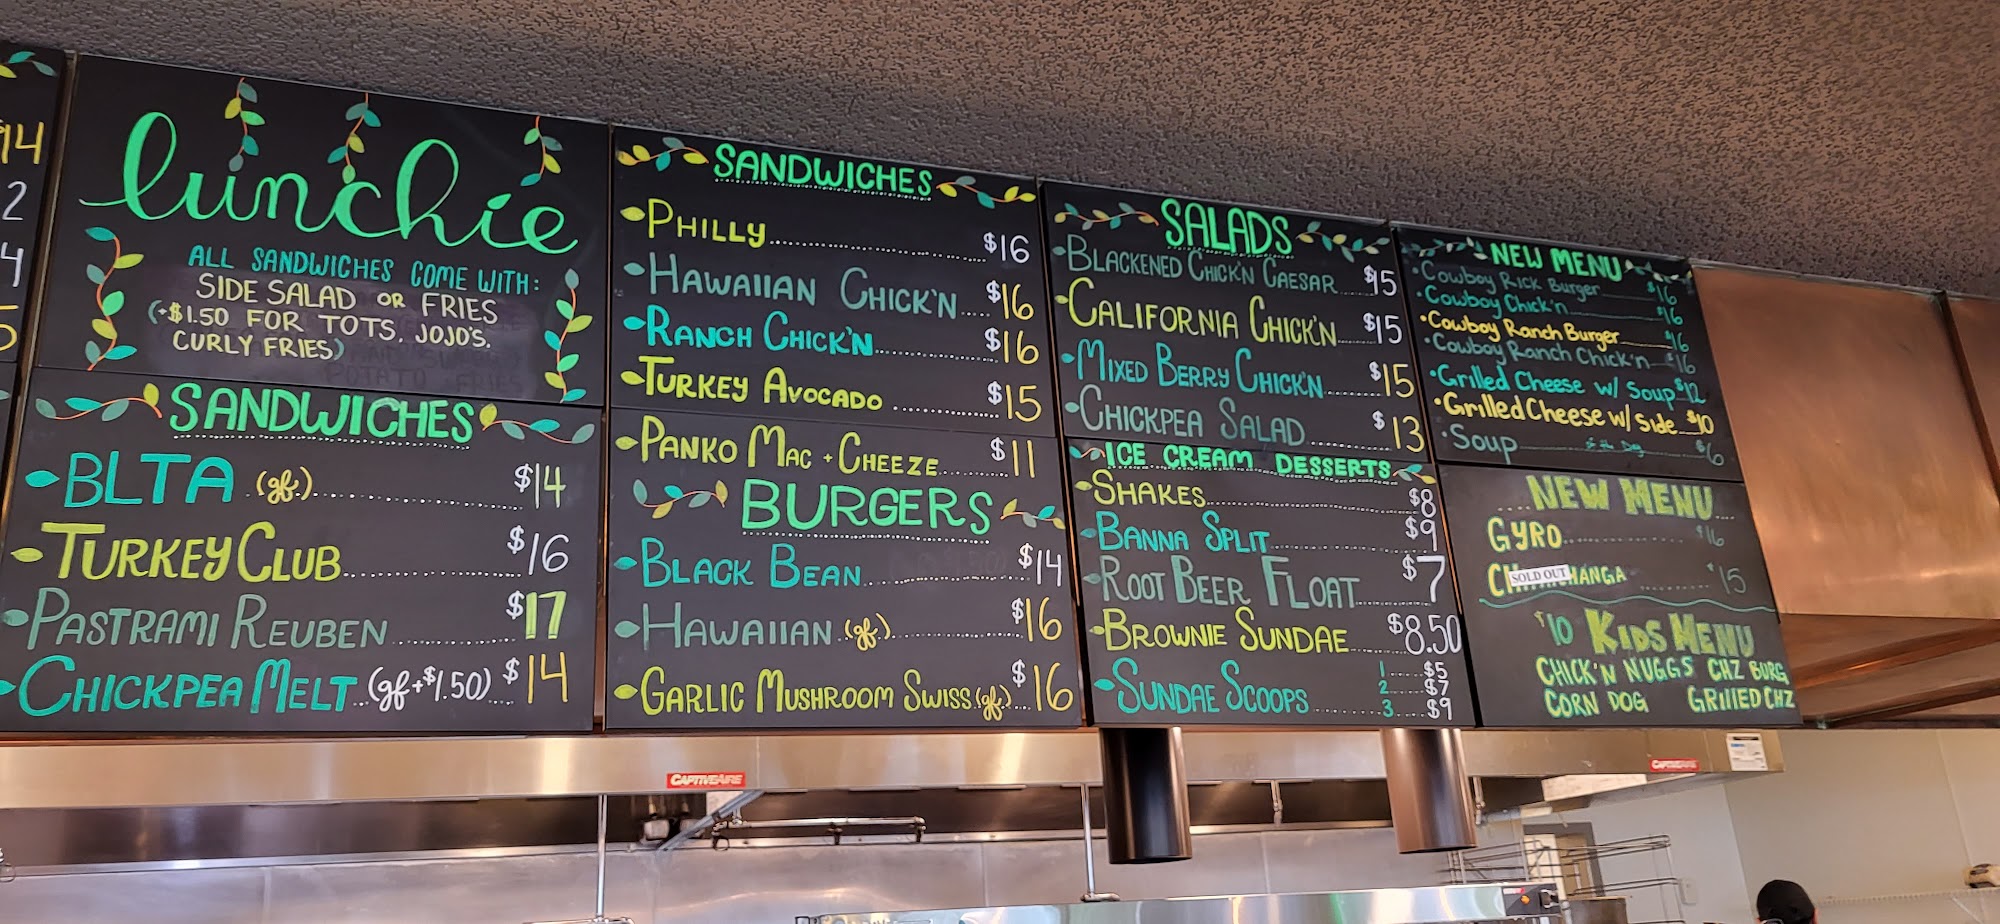 $14
2
4
5
lunchie
ALL SANDWICHES COME WITH:
SIDE SALAD OR FRIES
(+$1.50 FOR TOTS, JOJO'S,
CURLY FRIES)
SANDWICHES
BLTA (gf)...... $14
TURKEY CLUB...... $16
PASTRAMI REUBEN...... $17
CHICKPEA MELT...(gf+$1.50) $14
SANDWICHES
PHILLY...... $16
HAWAIIAN CHICK'N..... $16
RANCH CHICK'N...... $16
TURKEY AVOCADO ...... $15
PANKO MAC + CHEEZE...... $11
BURGERS
BLACK BEAN...... $14
HAWAIIAN (gf)...... $16
GARLIC MUSHROOM SWISS (gf)... $16
SALADS
BLACKENED CHICK'N CAESAR..... $15
CALIFORNIA CHICK'N ..... $15
MIXED BERRY CHICK'N...... $15
CHICKPEA SALAD...... $13
ICE CREAM DESSERTS
SHAKES...... $8
BANNA SPLIT...... $9
ROOT BEER FLOAT...... $7
BROWNIE SUNDAE...... $8.50
SUNDAE SCOOPS...... 1 .... $5
2 .... $7
3 .... $9
NEW MENU
Cowboy Rick Burger...... $16
Cowboy Chick'n...... $16
Cowboy Ranch Burger...... $16
Cowboy Ranch Chick'n... $16
Grilled Cheese w/ Soup $12
Grilled Cheese w/ Side $10
Soup of the Day $6
NEW MENU
GYRO...... $16
CH SOLD OUT HANGA ...... $15
$10 KIDS MENU
CHICK'N NUGGS CHZ BURG
CORN DOG GRILLED CHZ
CAPTIVEAIRE
CAPTIVEAIRE